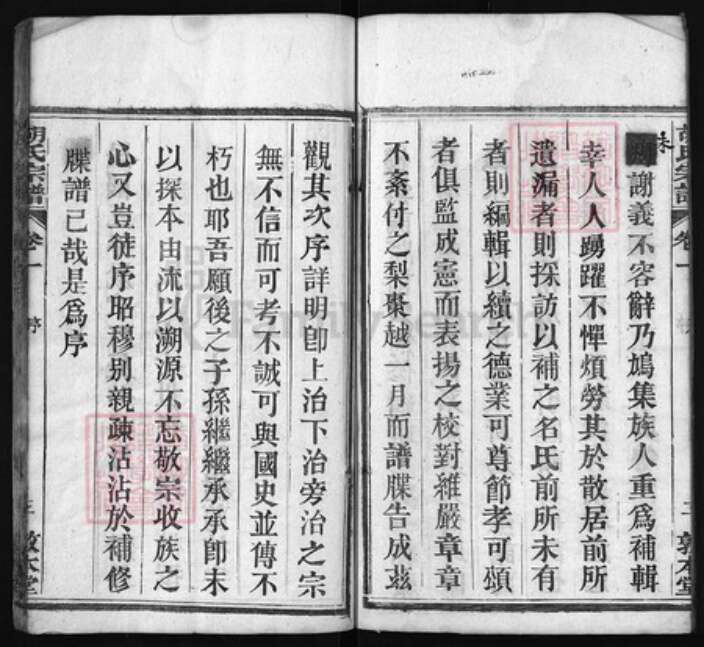 胡氏宗譜
卷一
敦本堂
謝義不容辭乃鳩集族人重爲補輯
幸人人踴躍不憚煩勞其於散居前所
遺漏者則探訪以補之名氏前所未有
者則編輯以續之德業可尊節孝可頌
者俱監成憲而表揚之校對維嚴章章
不紊付之梨棗越一月而譜牒告成茲
觀其次序詳明卽上治下治旁治之宗
無不信而可考不誠可與國史並傳不
朽也耶吾願後之子孫繼繼承承卽末
以探本由流以溯源不忘敬宗收族之
心又豈徒序昭穆別親疎沾沾於補修
牒譜已哉是爲序
胡氏宗譜
卷一
序
三
敦本堂
FamilySearch